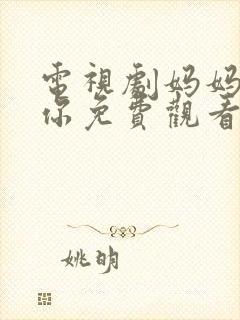 電視劇妈妈
你免費觀看
姚明